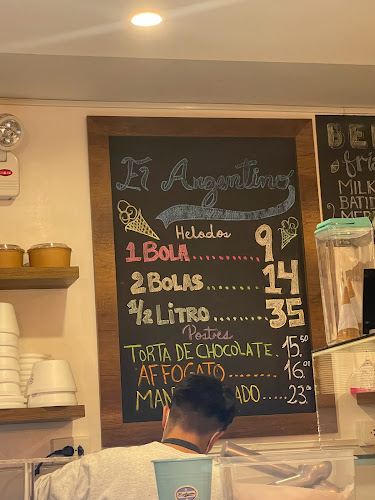 El Argentino
Helados
1 BOLA ........ 9
2 BOLAS ........ 14
1/2 LITRO ........ 35
Postres
TORTA DE CHOCOLATE. 15.50
AFFOGATO ........ 16.
........ 23.
MILK
BATID